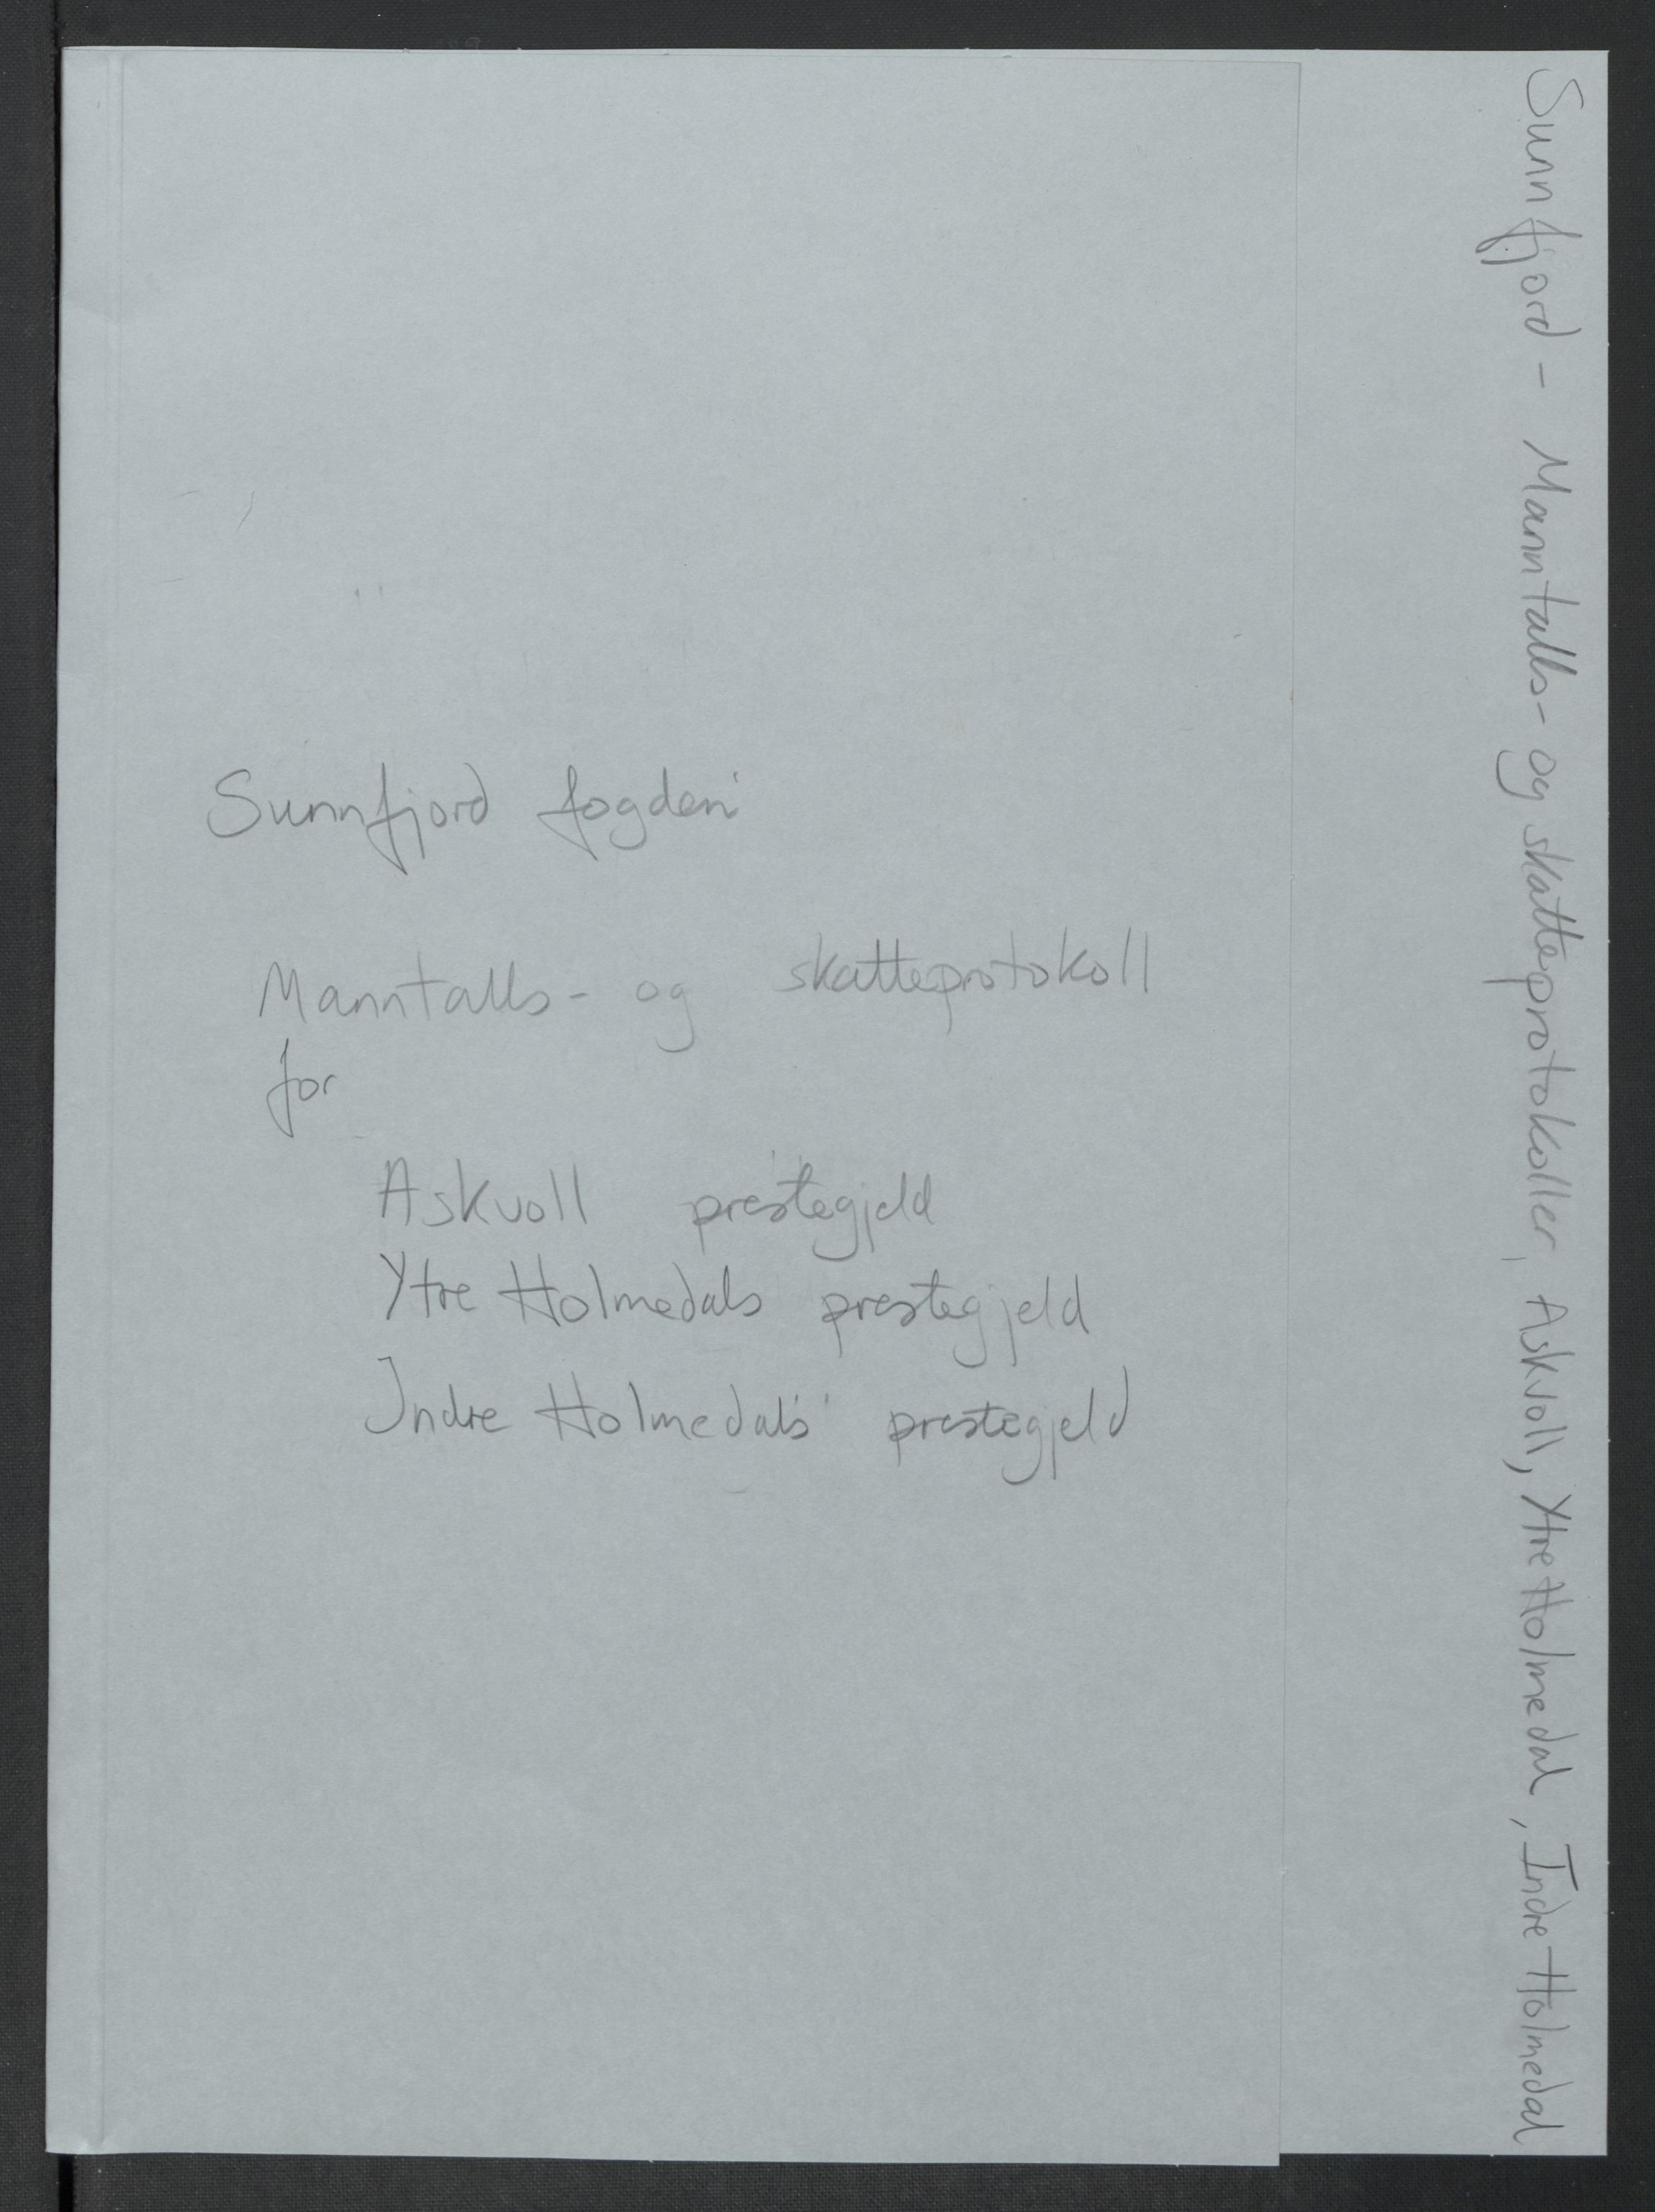 Sunnfjord fogderi
Manntalls- og skatteprotokoll
for
Askvoll prestegjeld
Ytre Holmedals prestegjeld
Indre Holmedals prestegjeld
Sunnfjord - Manntalls- og skatteprotokoller, Askvoll, Ytre Holmedal, Indre Holmedal